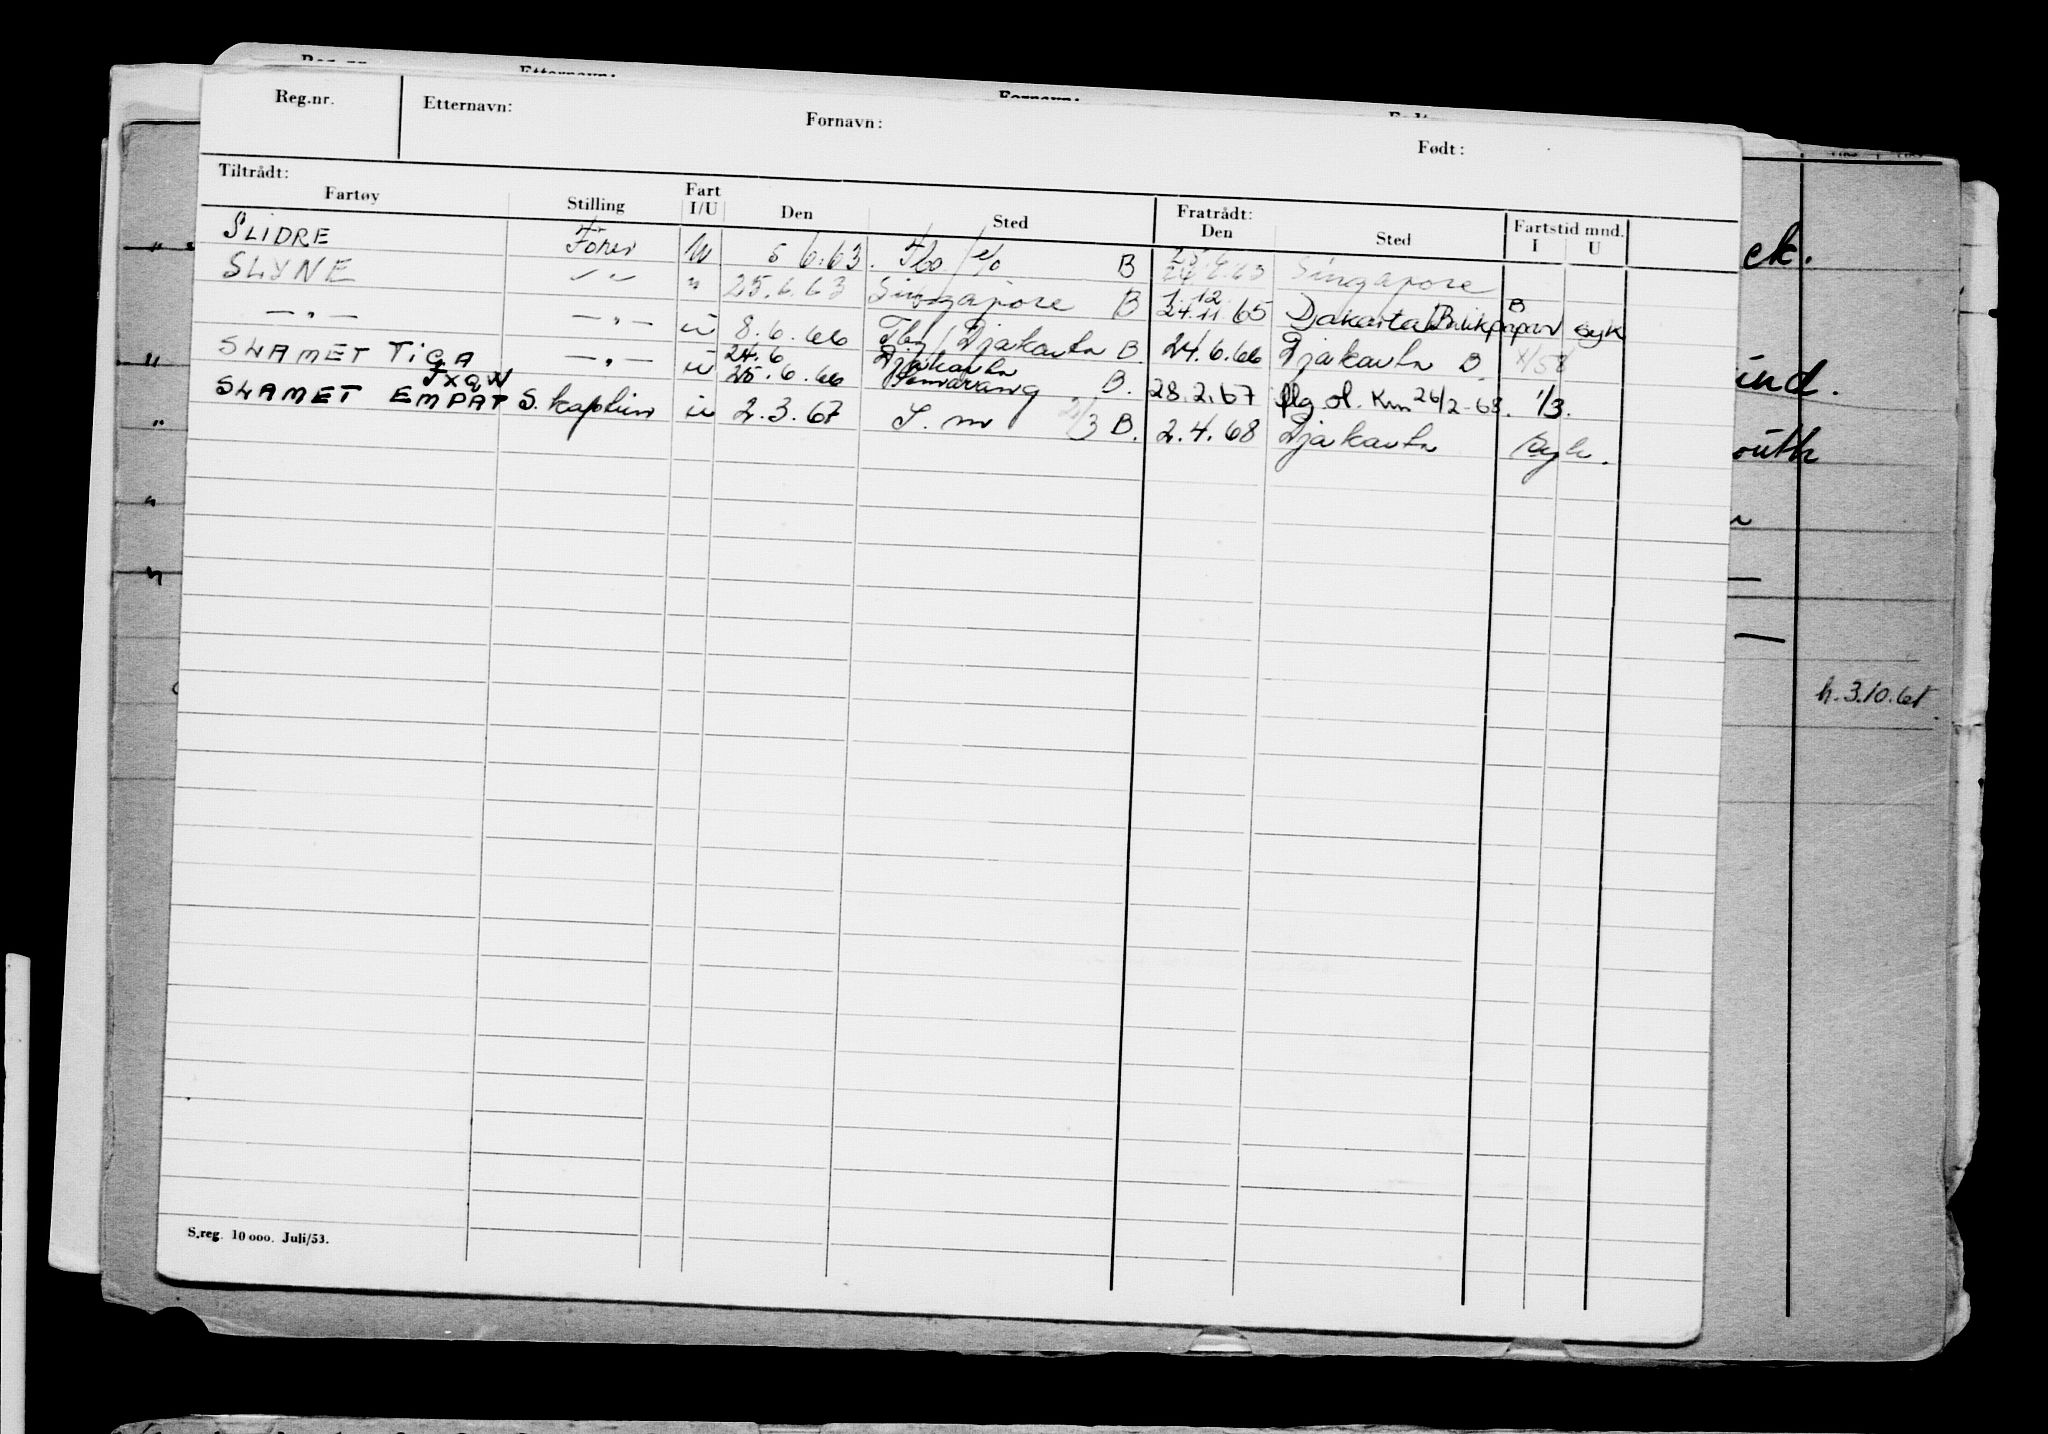 Reg.nr. Etternavn: Fornavn: Født:
Tiltrådt: Fratrådt: Fartstid mnd.
Fartøy Stilling Fart I/U Den Sted Den Sted I U
SLIDRE Fører U 5 6.63. Tbg B Singapore
SLYNE " 25.6.63 Singapore B 1.12 24.11.65 Djakarta B syk
— " — — " — U 8.6.66 Tbg / Djakarta B 24.6.66 Djakarta B
SLAMET TIGA — " — U 24.6 25.6.66 Djakarta Semarang B. 28.2.67 26/2-68. 1/3.
JXQW
SLAMET EMPAT S. kaptein U 2.3.67 S. m 2/3 B. 2.4.68 Djakarta syk.
ck.
ind.
outh
h. 3.10.61.
S.reg. 10 000. Juli/53.